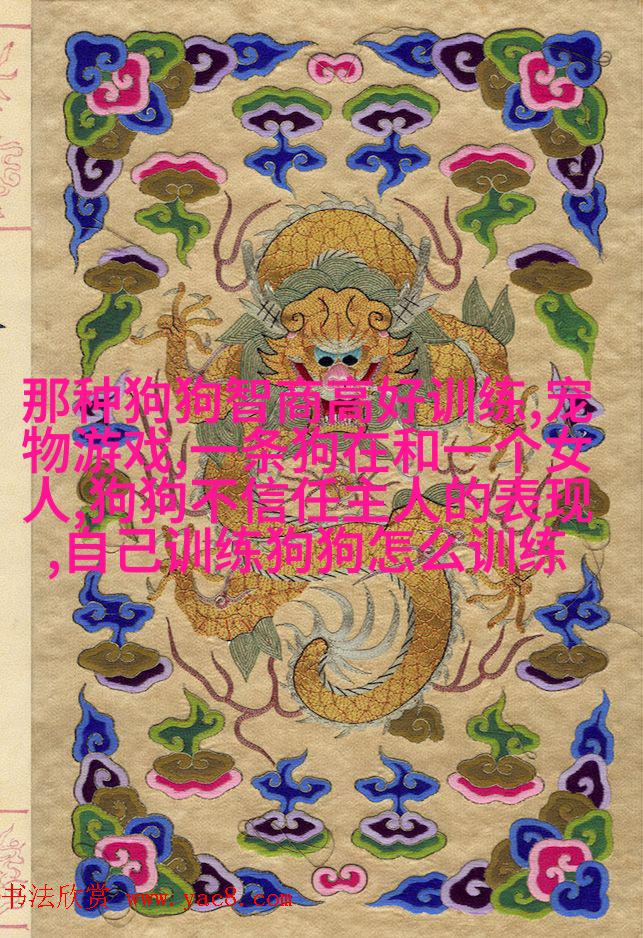 那种狗狗智商高好训练,宠
物游戏,一条狗在和一个女
人,狗狗不信任主人的表现
,自己训练狗狗怎么训练
书法欣赏 www.yac8.com